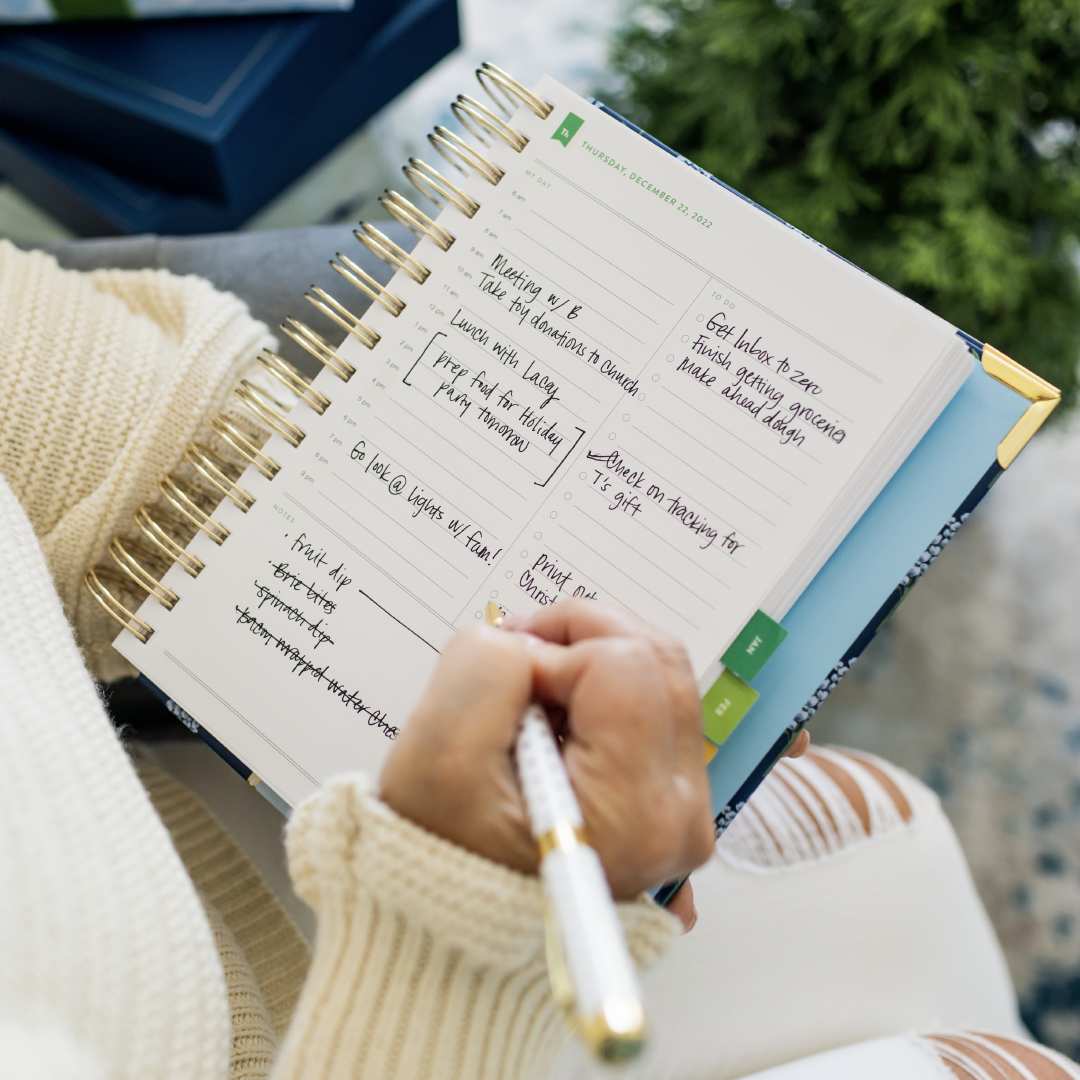 Th
THURSDAY, DECEMBER 22, 2022
MY DAY
6 am
7 am
8 am
9 am
Meeting w/ B
10 am
Take toy donations to church
11 am
12 pm
Lunch with Lacey
1 pm
2 pm
prep food for Holiday
3 pm
party tomorrow
4 pm
5 pm
6 pm
7 pm
Go look @ lights w/ fam!
8 pm
9 pm
TO DO
Get Inbox to zero
Finish getting groceries
Make ahead dough
Check on tracking for
T's gift
Print out
Christ
NOTES
· fruit dip
· Brie bites
· spinach dip
· bacon wrapped water ches
JAN
FEB